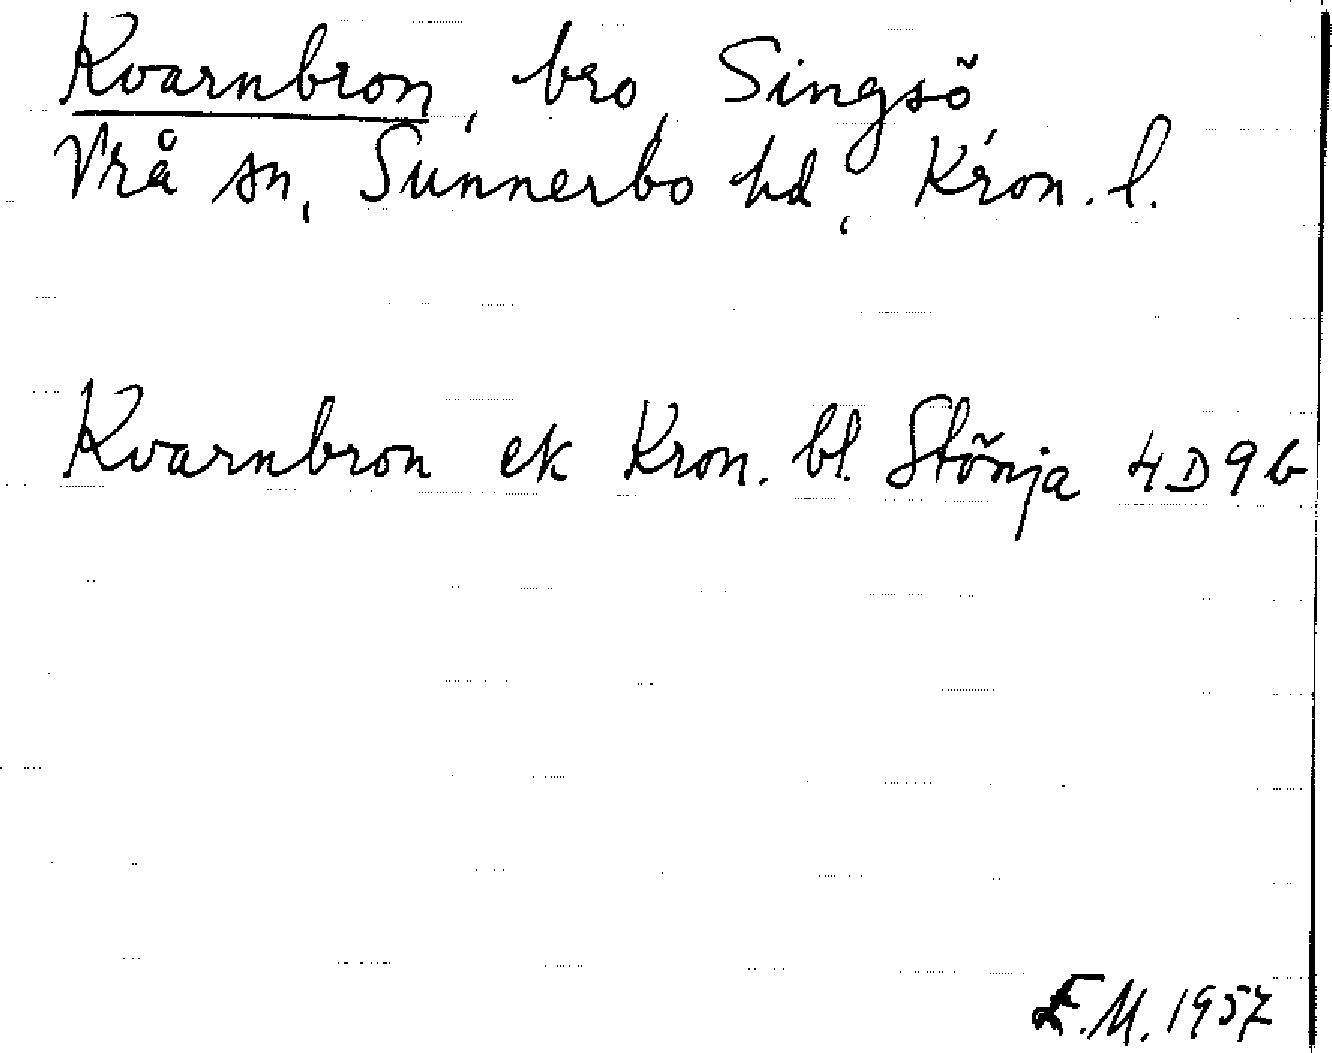 Kvarnbron, bro, Singsö
Vrå sn, Sunnerbo hd, Kron. l.
Kvarnbron ek Kron. bl. Stönja 4D9b
E.M. 1957